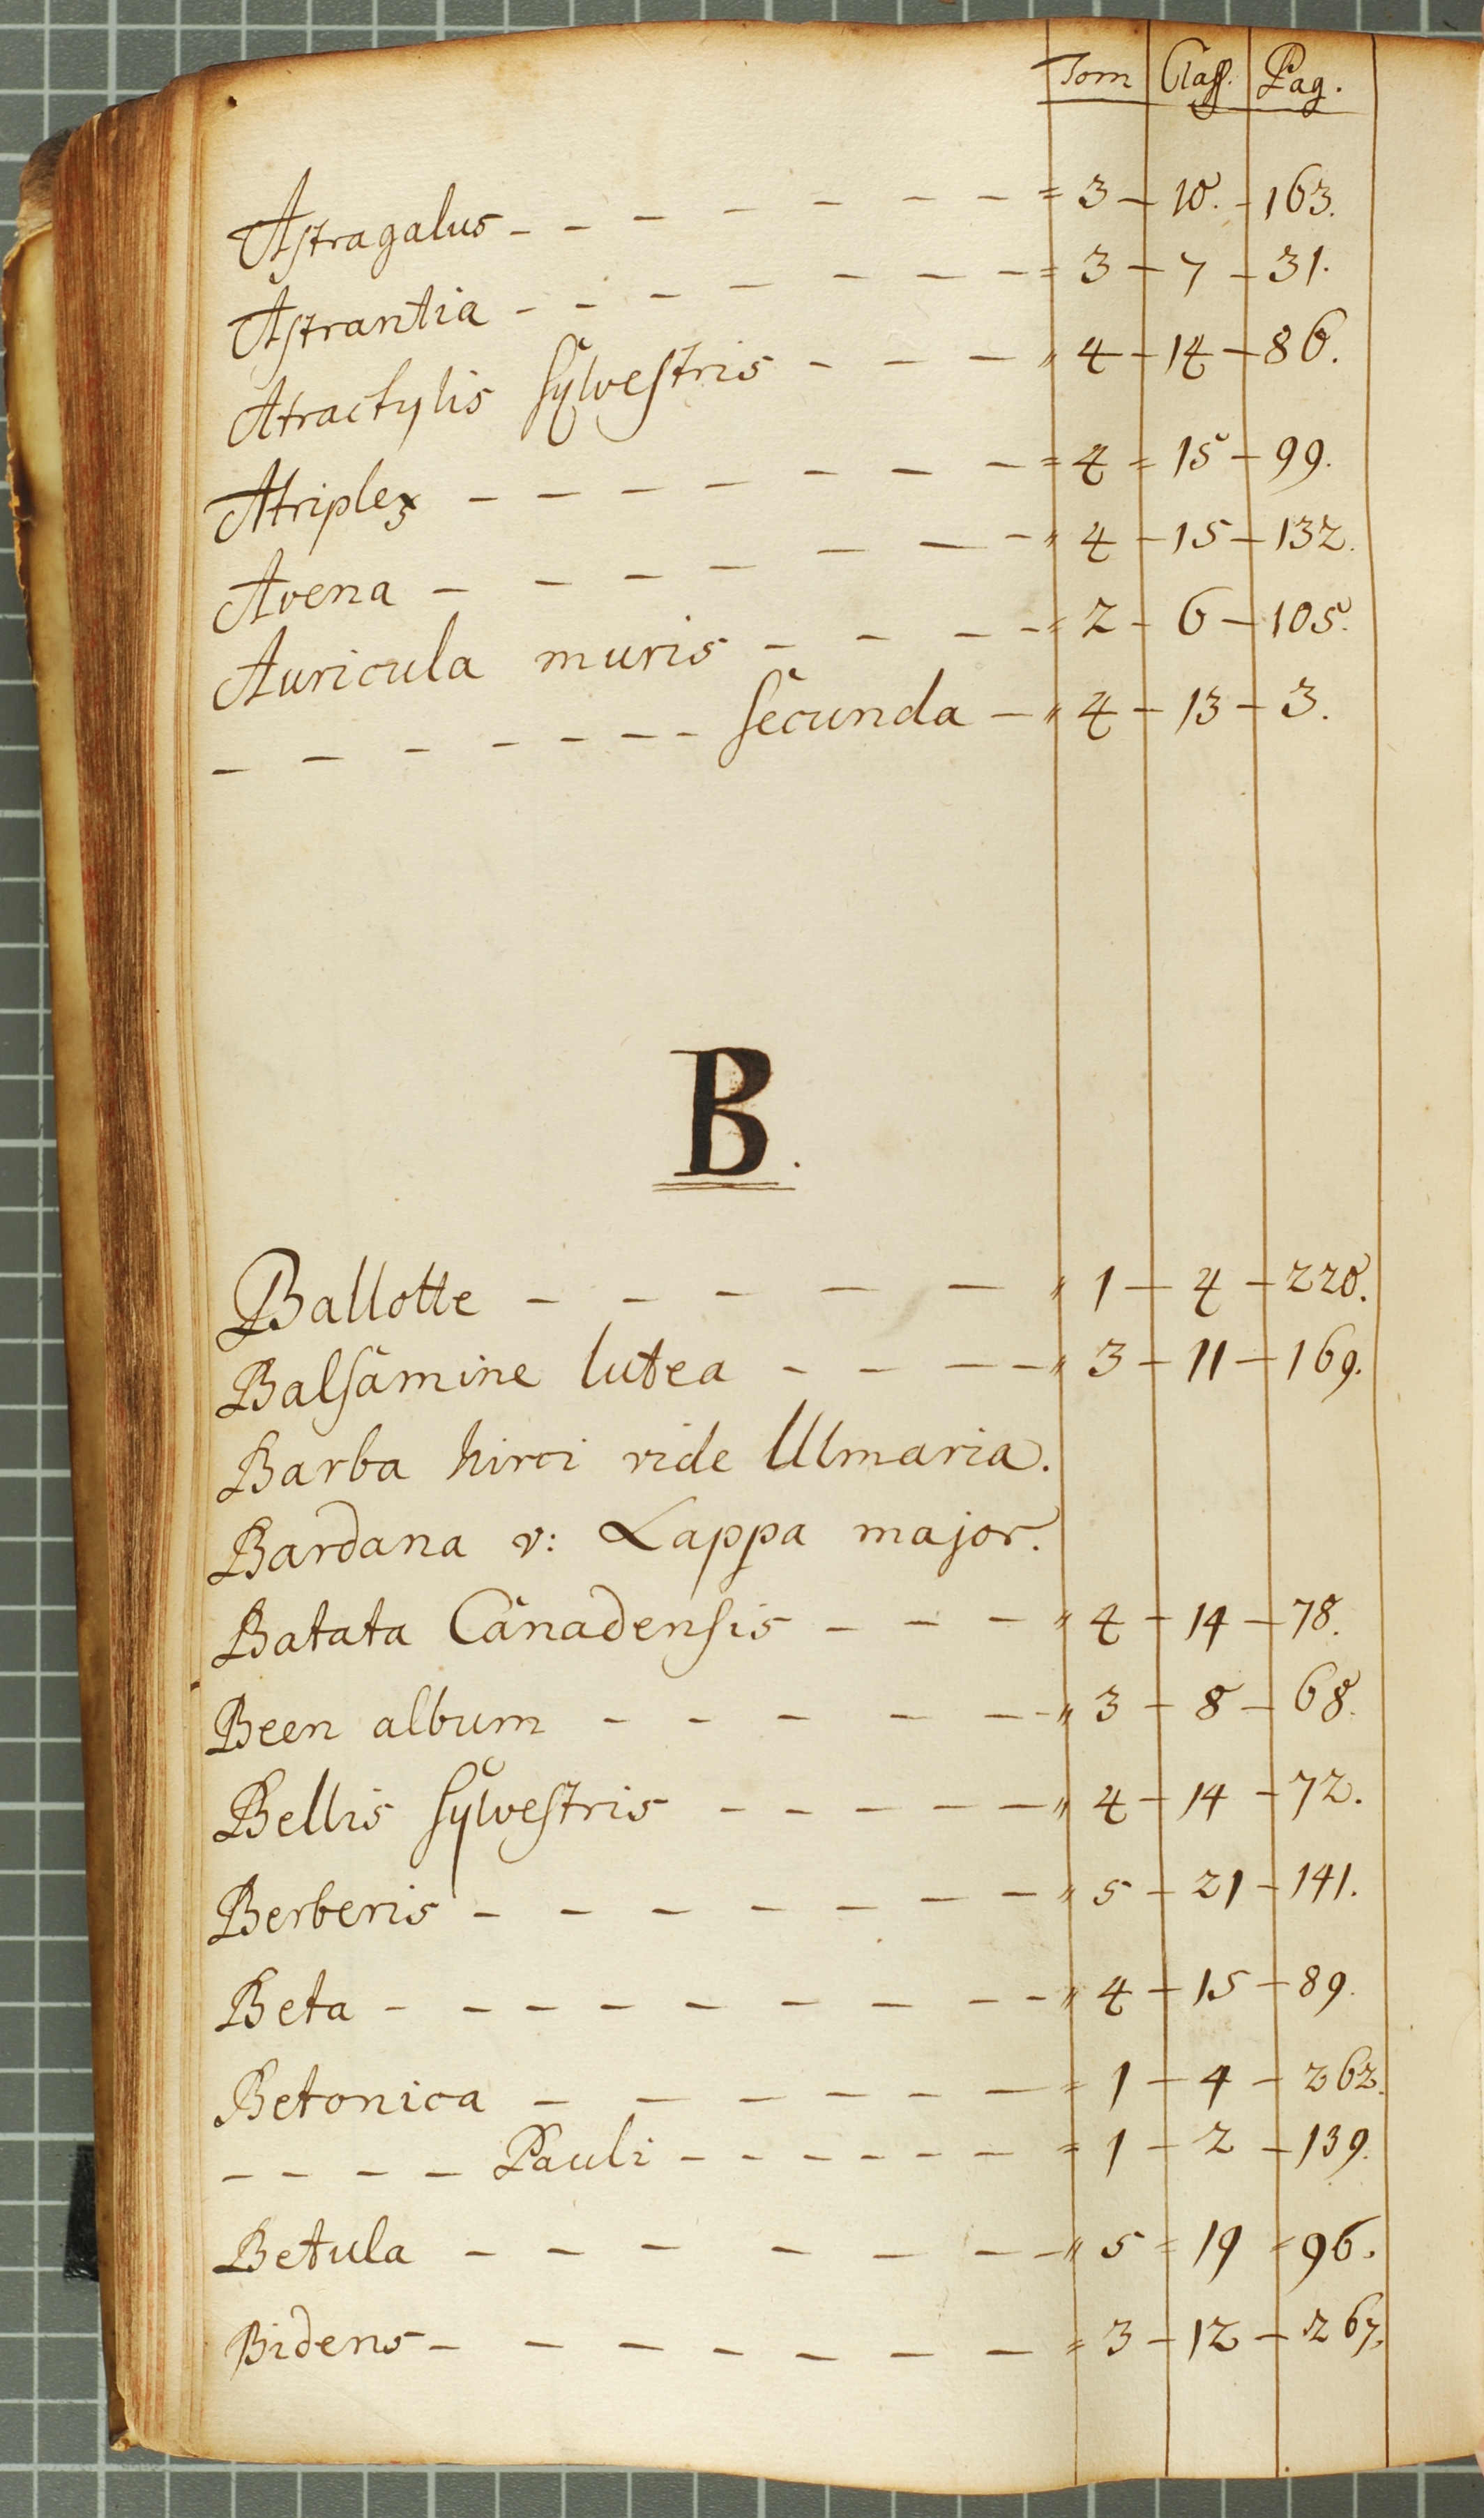 Tom Class. Pag.
Astragalus - - - - - - - = 3 - 10. - 163.
Astrantia - - - - - - - = 3 - 7 - 31.
Atractylis sylvestris - - - " 4 - 14 - 86.
Atriplex - - - - - - - = 4 = 15 - 99.
Avena - - - - - - - " 4 - 15 - 132.
Auricula muris - - - - " 2 - 6 - 105.
- - - - - - - secunda - " 4 - 13 - 3.
B.
Ballotte - - - - - " 1 - 4 - 220.
Balsamine lutea - - - - " 3 - 11 - 169.
Barba hirci vide Ulmaria.
Bardana v: Lappa major.
Batata Canadensis - - - " 4 - 14 - 78.
Been album - - - - - - " 3 - 8 - 68.
Bellis sylvestris - - - - - " 4 - 14 - 72.
Berberis - - - - - - - " 5 - 21 - 141.
Beta - - - - - - - - - " 4 - 15 - 89.
Betonica - - - - - - = 1 - 4 - 262.
- - - - Pauli - - - - - - = 1 - 2 - 139.
Betula - - - - - - - " 5 = 19 = 96.
Bidens - - - - - - - = 3 - 12 - 267.